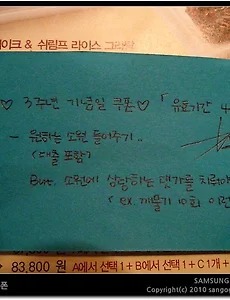 이크 & 쉬림프 라이스 그라탕
♡ 3주년 기념일 쿠폰♡ 「유효기간 4
- 원하는 소원 들어주기..
(대출 포함)
But, 소원에 상당하는 댓가를 치뤄야
(ex. 깨물기 10회 이
83,800 원 A에서 선택 1 + B에서 선택 1 + C 1개 +
폰
SAMSUNG
Copyright(c) 2010 sangog